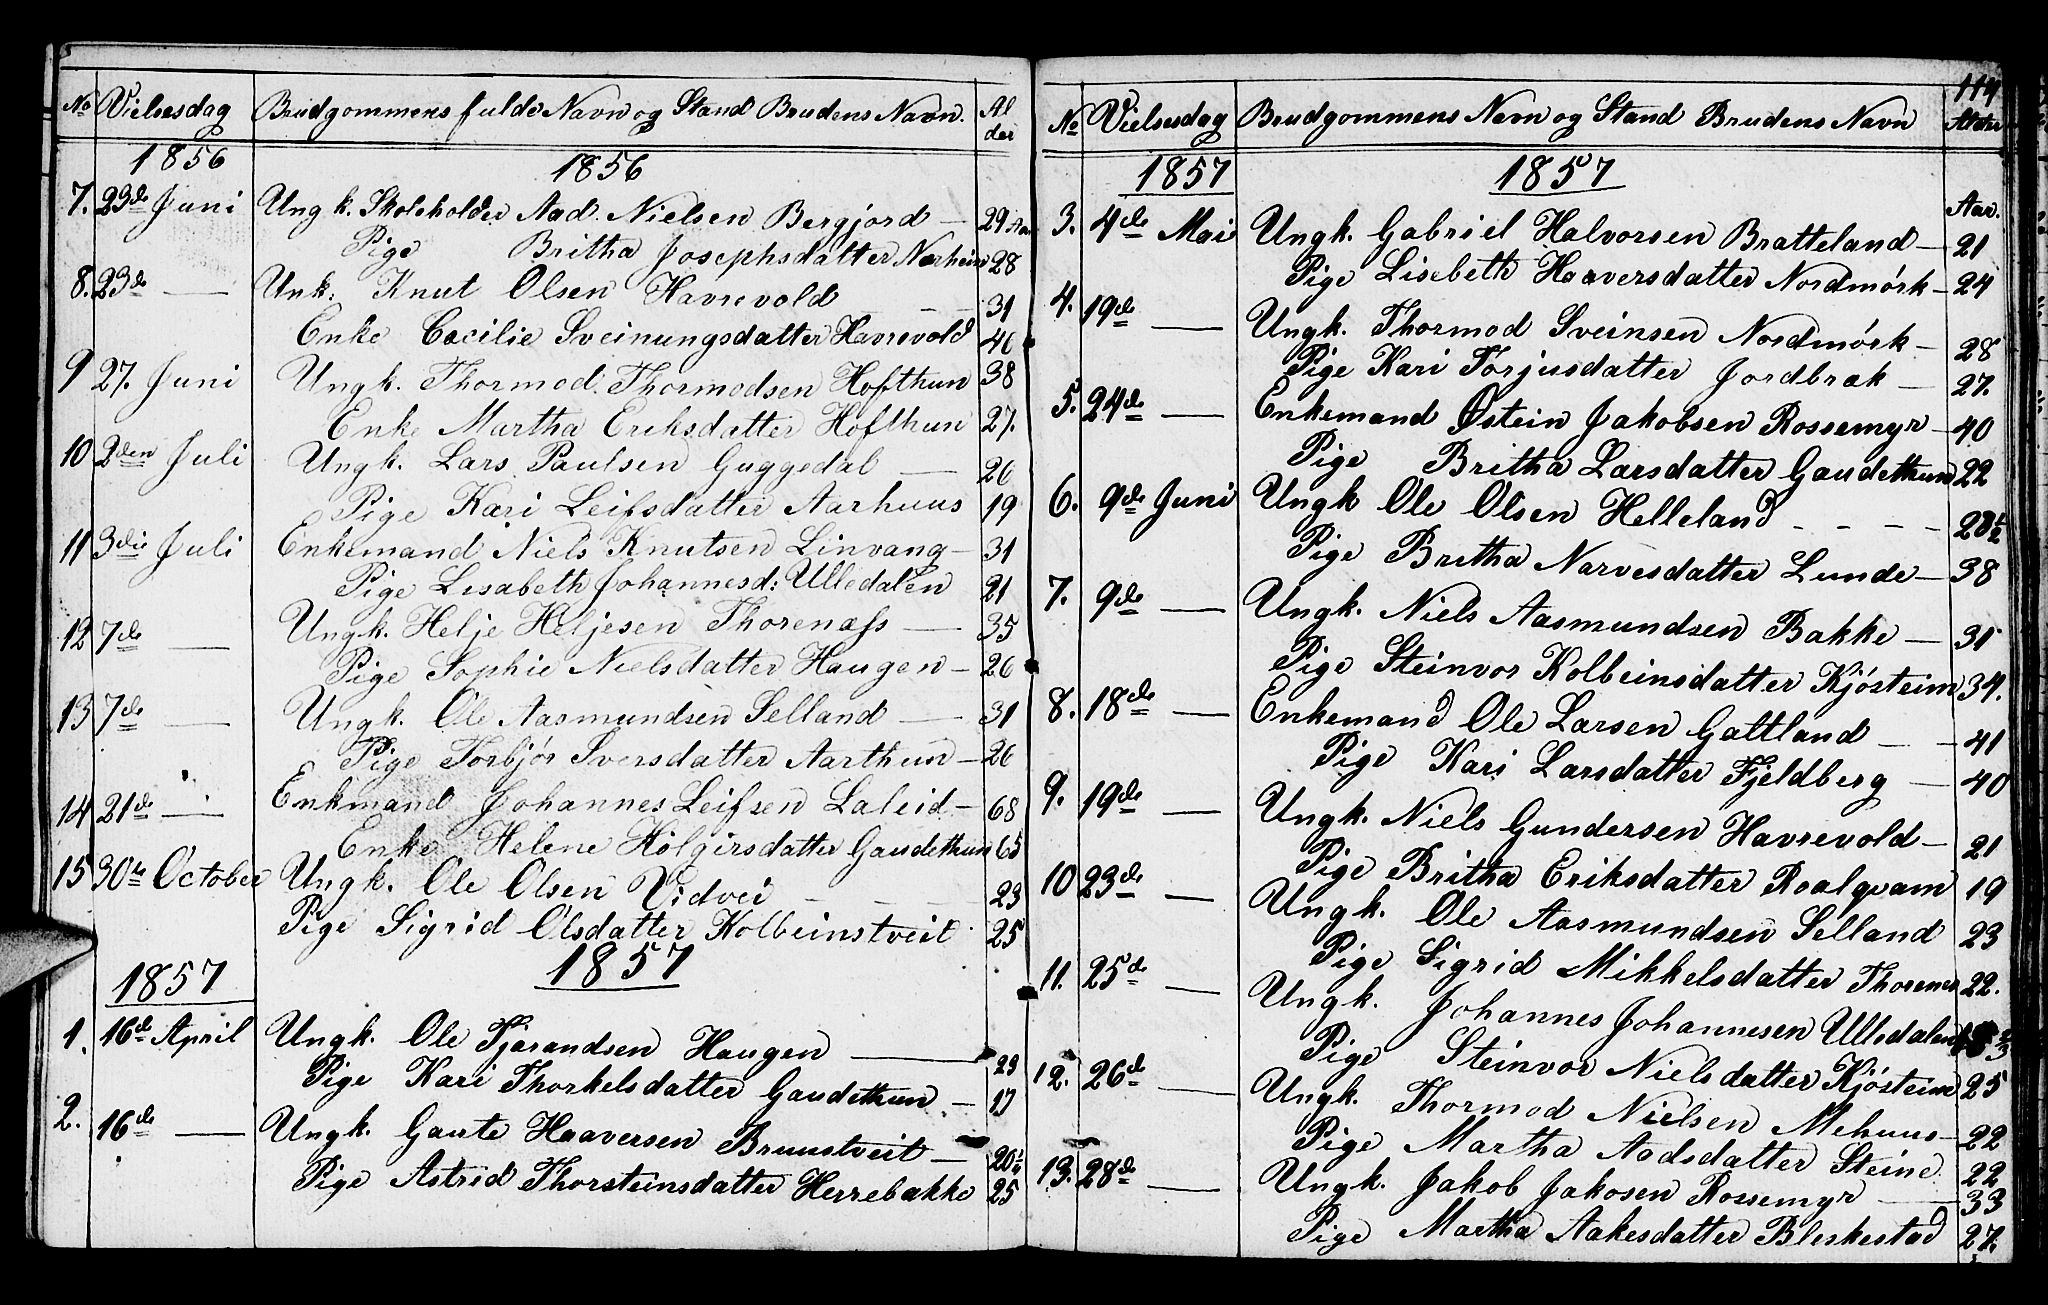 No Vielsesdag Brudgommens fulde Navn og Stand Brudens Navn. Al
der
1856 1856
7. 23de Juni Ungk. Skoleholder Aad. Nielsen Bergjord — 29 Aar
Pige Britha Josephsdatter Nærheim 28
8. 23de — Unk. Knut Olsen Havrevold — 31
Enke Cecilie Sveinungsdatter Havrevold 40
9 27. Juni Ungk. Thormod Thormodsen Hofthun 38
Enke Martha Eriksdatter Hofthun 27.
10 2den Juli Ungk. Lars Paulsen Guggedal — 26
Pige Kari Leifsdatter Aarhuus 19
11 3die Juli Enkemand Niels Knutsen Linvang — 31
Pige Lisabeth Johannesd: Ulledalen 21
12 7de — Ungk. Helje Heljesen Thorenæss — 35
Pige Sophie Nielsdatter Haugen — 26
13 7de — Ungk. Ole Aasmundsen Selland — 31
Pige Torbjør Sversdatter Aarthun — 26
14 21de — Enkmand Johannes Leifsen Laleid — 68
Enke Helene Holgirsdatter Gaudethun 65
15 30te October Ungk. Ole Olsen Vidvei - - - 23
Pige Sigrid Olsdatter Kolbeinstveit 25
1857 1857
1. 16de April Ungk. Ole Tjerandsen Haugen — 23
Pige Kari Thorkelsdatter Gaudethun — 17
2. 16de — Ungk. Gaute Haaversen Bruunstveit — 20½
Pige Astrid Thorsteinsdatter Herrebakke 25
114
No Vielsesdag Brudgommens Navn og Stand Brudens Navn Alder
1857 1857
Aar.
3. 4de Mai Ungk. Gabriel Halvorsen Bratteland — 21
Pige Lisebeth Haaversdatter Nordmørk — 24
4. 19de — Ungk. Thormod Sveinsen Nordmørk — 28
Pige Kari Torjusdatter Jordbræk — 27.
5. 24de — Enkemand Østein Jakobsen Rossemyr — 40
Pige Britha Larsdatter Gaudethun 22
6. 9de Juni Ungk Ole Olsen Helleland - - - - 23½
Pige Britha Narvesdatter Lunde — 38
7. 9de — Ungk. Niels Aasmundsen Bakke — 31
Pige Steinvor Kolbeinsdatter Kjøsteim 34.
8. 18de — Enkemand Ole Larsen Gattland — 41
Pige Kari Larsdatter Fjeldberg — 40
9. 19de — Ungk. Niels Gundersen Havrevold — 21
Pige Britha Eriksdatter Roalqvam 19
10 23de — Ungk. Ole Aasmundsen Selland 23
Pige Sigrid Mikkelsdatter Thorenes 22.
11. 25de — Ungk. Johannes Johannesen Ulledalen
Pige Steinvor Nielsdatter Kjøsteim 25
12. 26de — Ungk. Thormod Nielsen Mehuus — 22
Pige Martha Aadsdatter Steine 22
13. 28de — Ungk. Jakob Jakosen Rossemyr — 33
Pige Martha Aakesdatter Bleskestad 27.